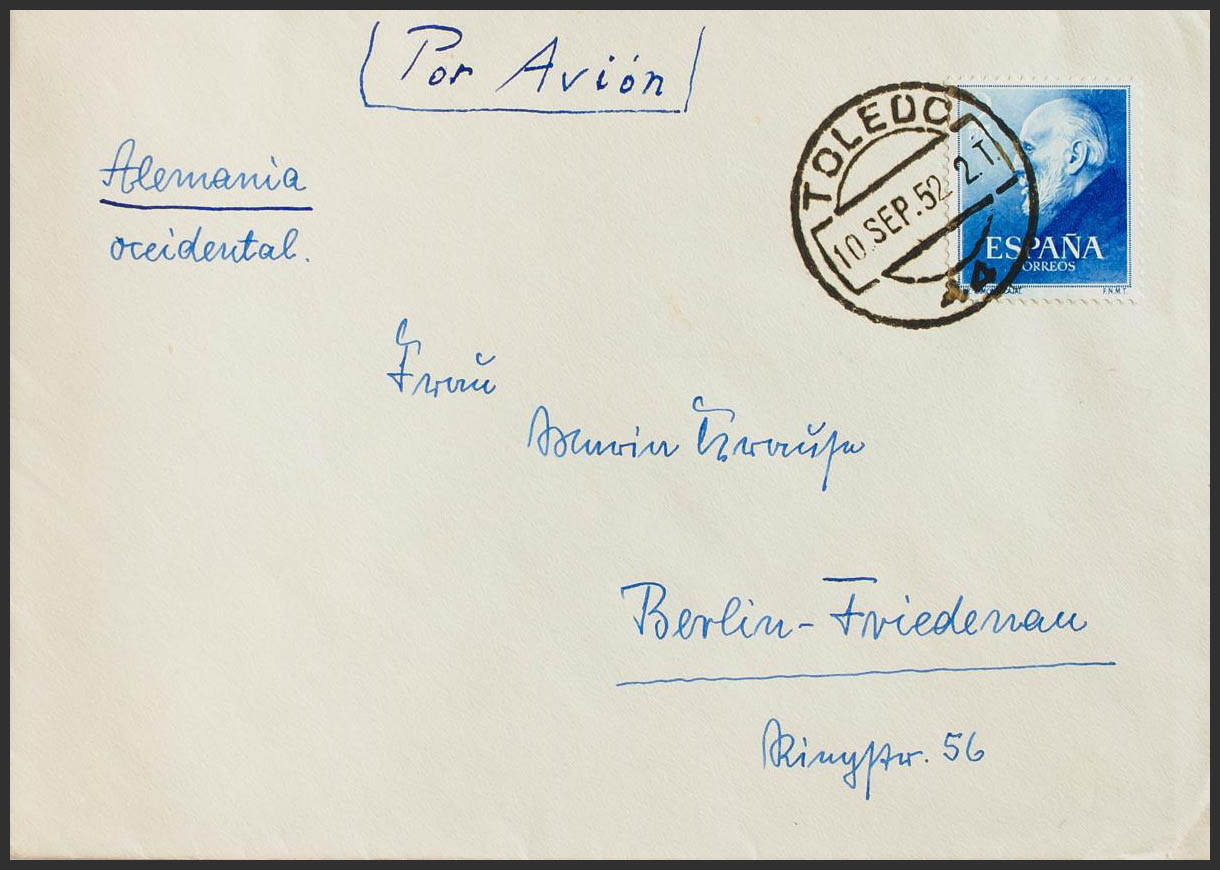 Por Avión
Alemania
occidental.
TOLEDO
10. SEP. 52. 2.T.
4
ESPAÑA
CORREOS
F.N.M.T.
Frau
Maria Krause
Berlin-Friedenau
Ringstr. 56